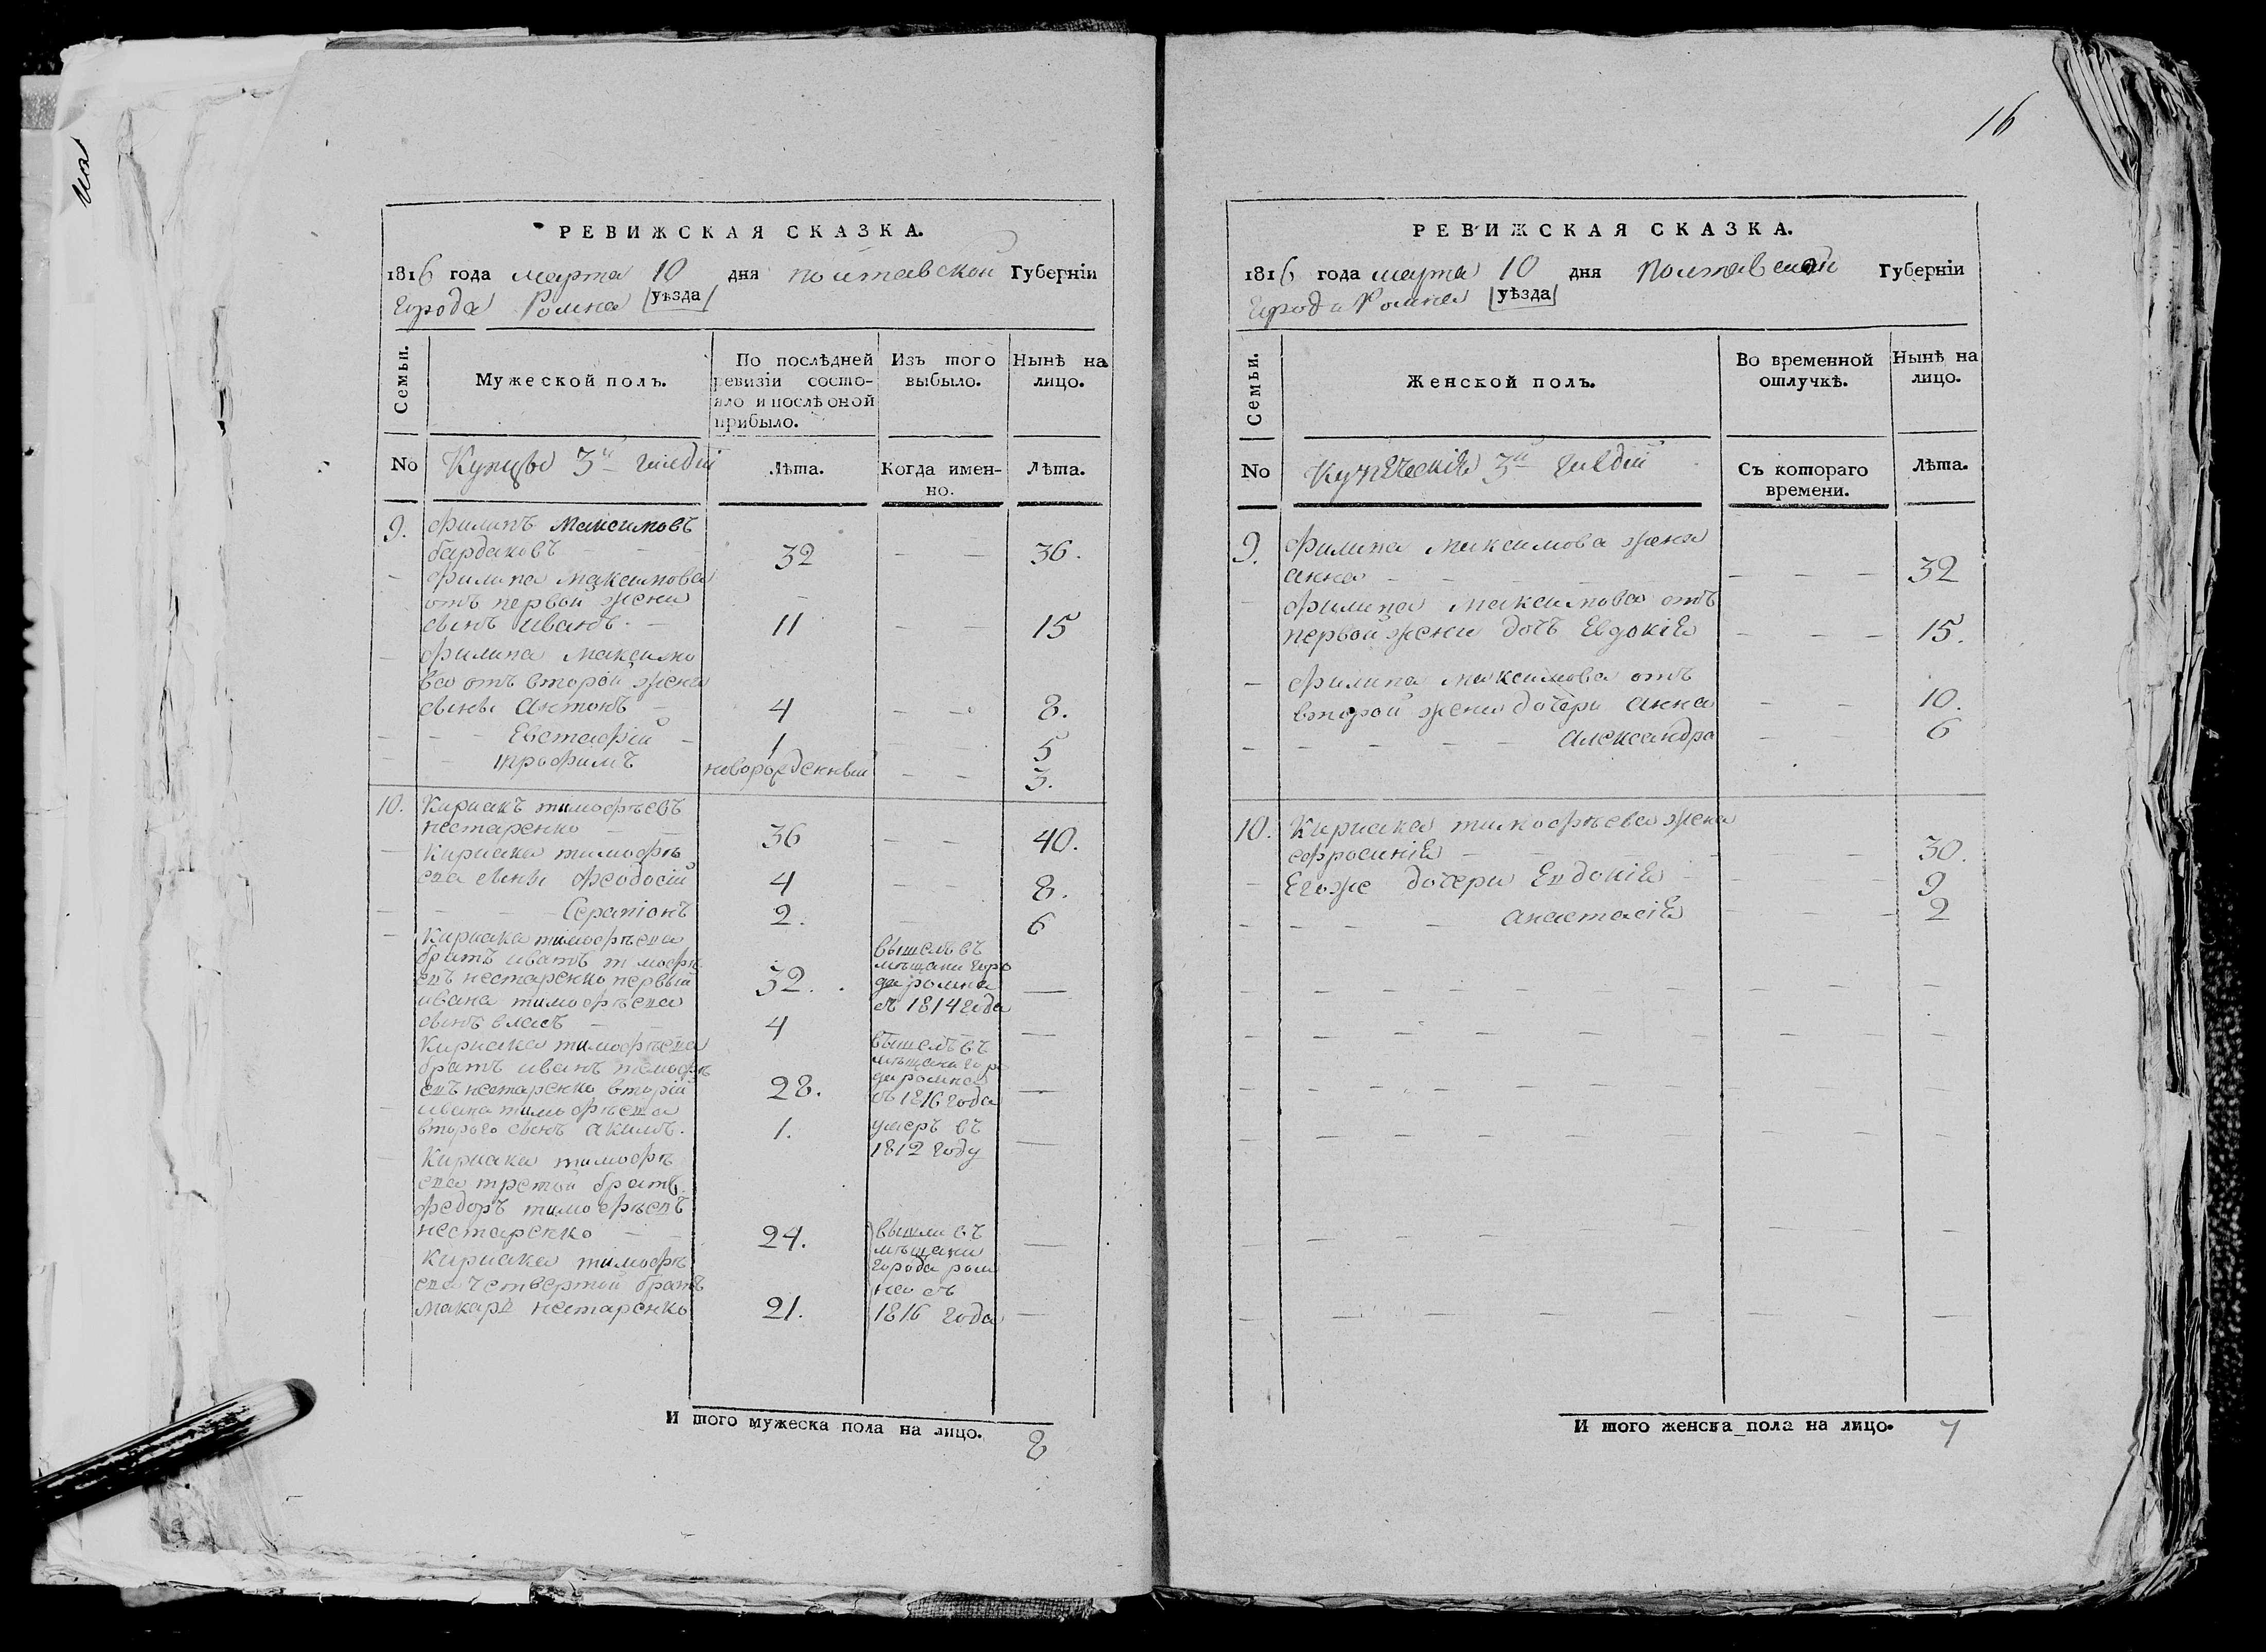 16
РЕВИЖСКАЯ СКАЗКА.
1816 года марта 10 дня полтавской Губерніи
города Ромна уѣзда
Семьи.
Мужеской полъ.
По послѣдней
ревизіи состо-
яло и послѣ оной
прибыло.
Изъ того
выбыло.
Нынѣ на
лицо.
No
Купцы 3й гилдіи
Лѣта.
Когда имен-
но.
Лѣта.
9. Филипъ Максимовъ
бардаковъ — 32 — — 36.
— Филипа Максимова
отъ первой жены
сынъ Иванъ. — 11 — — 15
— Филипа Максимо
ва отъ второй жены
сыны Антонъ — 4 — — 8.
— — — Евстафій — 1 5
— — трофимъ новорожденный — — 3.
10. Кириакъ тимофѣевъ
нестеренко — — 36 — — 40.
— Кириака тимофѣ
ева сыны Феодосій 4 — — 8.
— — — Серапіонъ 2. — 6
— Кириака тимофѣева
братъ иванъ тимофѣ
евъ нестеренко первый 32. —
ивана тимофѣева
сынъ власъ — — 4 —
вышелъ въ
мѣщани горо
да ромна
съ 1814 года
Кириака тимофѣева
братъ иванъ тимофѣ
евъ нестеренко вторій 28. —
вышелъ въ
мѣщани горо
да ромна
съ 1816 года
— ивана тимофѣева
второго сынъ акимъ. 1. —
умеръ въ
1812 году
— Кириака тимофѣ
ева третой братъ
федоръ тимофѣевъ
нестеренко — — 24. —
Кириака тимофѣ
ева четвертой братъ
макаръ нестеренко 21. —
вышли въ
мѣщани
города ром
на съ
1816 года
И того мужеска пола на лицо. 8
РЕВИЖСКАЯ СКАЗКА.
1816 года марта 10 дня полтавской Губерніи
города Ромна уѣзда
Семьи.
Женской полъ.
Во временной
отлучкѣ.
Нынѣ на
лицо.
No
Купеческіе 3й гилдіи
Съ котораго
времени.
Лѣта.
9. Филипа Максимова жена
анна — — — — — — — 32
— Филипа Максимова отъ
первой жены дочъ Евдокіе — — — 15.
— Филипа Максимова отъ
второй жены дочери анна — — 10.
— — — — — Александра — — 6
10. Кириака тимофѣева жена
ефросиніе — — — — 30.
— Егоже дочери Евдокіе — — — 9
— — — — — анастасіе — — — 2
И того женска пола на лицо. 7